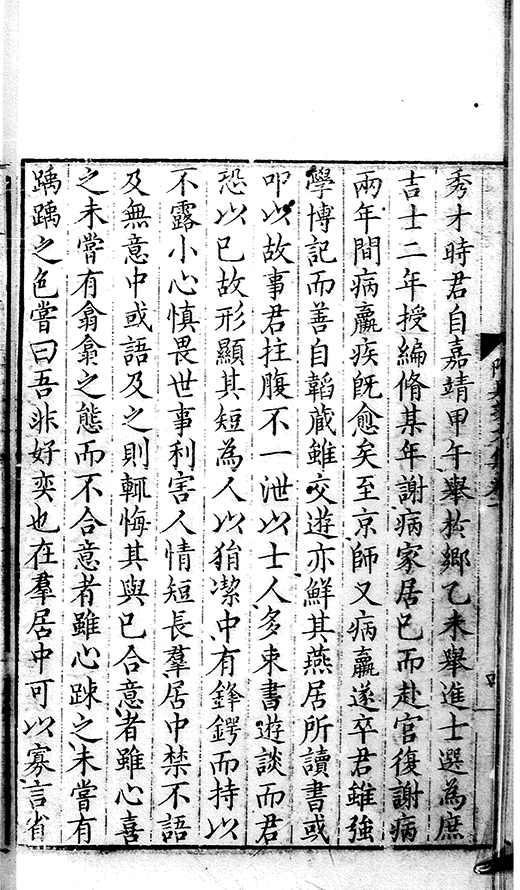 秀才時君自嘉靖甲午舉於鄉乙未舉進士選為庶
吉士二年授編脩某年謝病家居已而赴官復謝病
兩年間病羸疾旣愈矣至京師又病羸遂卒君雖強
學博記而善自韜蔵雖交遊亦鮮其燕居所讀書或
叩以故事君拄腹不一泄以士人多束書遊談而君
恐以已故形顯其短為人以狷潔中有鋒鍔而持以
不露小心慎畏世事利害人情短長羣居中禁不語
及無意中或語及之則輒悔其與已合意者雖心喜
之未嘗有翕翕之態而不合意者雖心踈之未嘗有
踽踽之色嘗曰吾非好奕也在羣居中可以寡言省